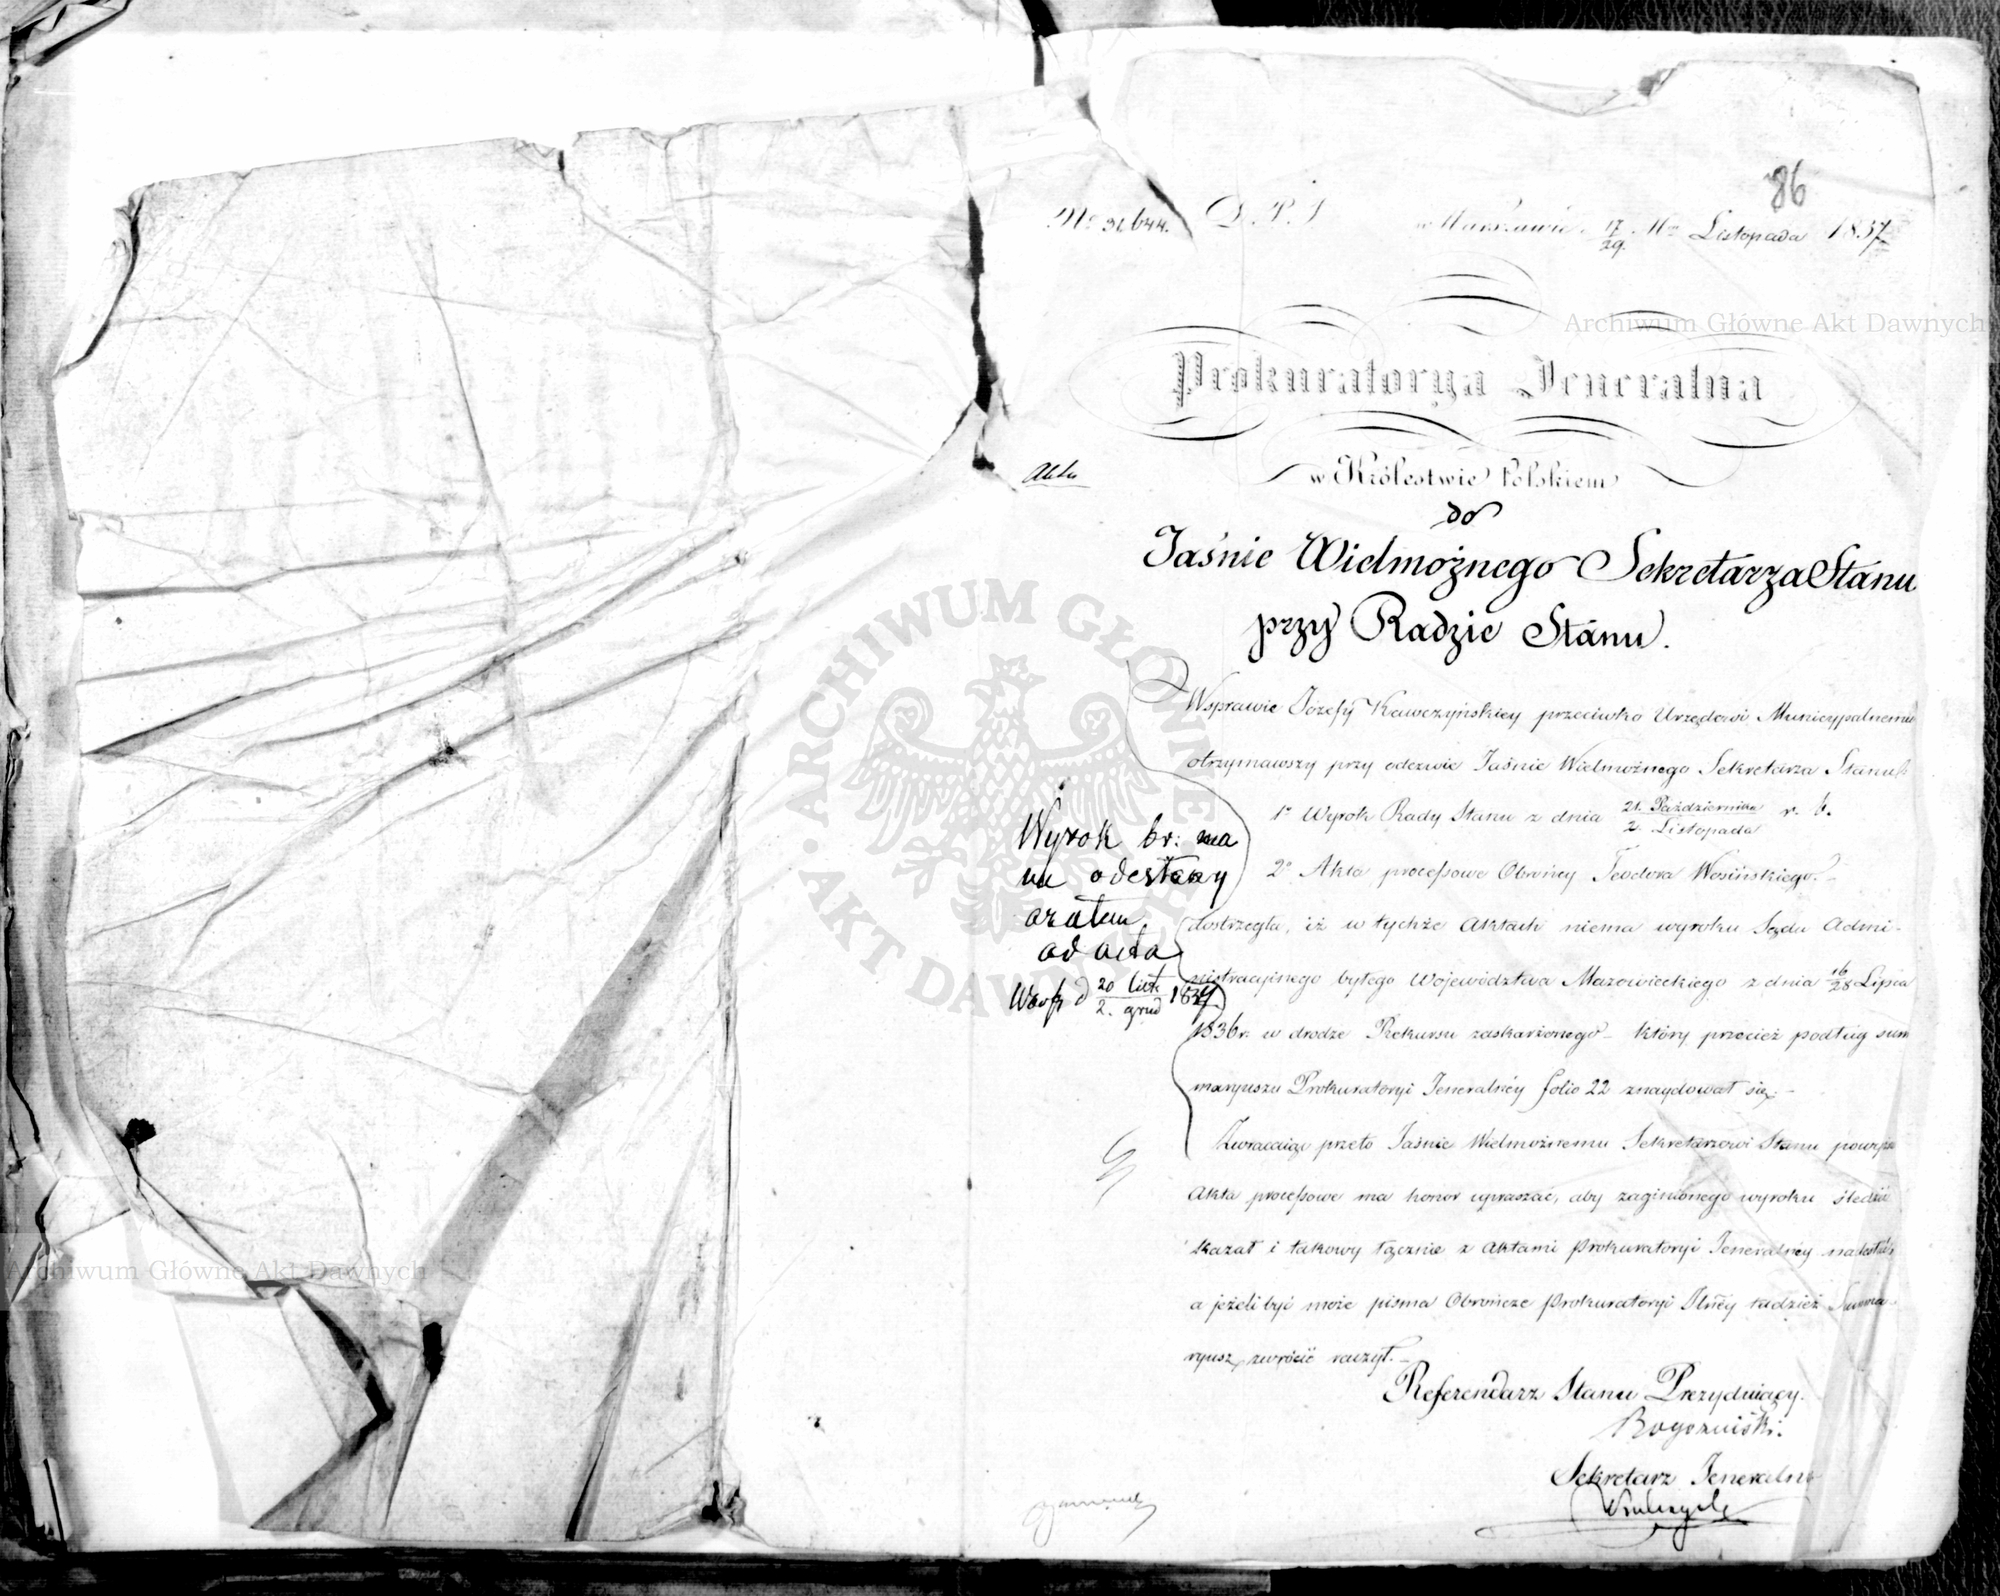 86
No 31644. D. P. J w Warszawie d. 17/29 Mca Listopada 1837
Prokuratorya Jeneralna
w Królestwie Polskiem
do
Jaśnie Wielmożnego Sekretarza Stanu
przy Radzie Stanu.
Akta
Wsprawie Józefy Kawczyńskiey przeciwko Urzędowi Municypalnemu
otrzymawszy przy odezwie Jaśnie Wielmożnego Sekretarza Stanu
1o Wyrok Rady Stanu z dnia 21. Października/2. Listopada r. b.
2o Akta processowe Obrońcy Teodora Wosińskiego.
dostrzegła, iż w tychże Aktach niema wyroku Sądu Admi-
nistracyinego byłego Województwa Mazowieckiego z dnia 16/28 Lipca
1836 r. w drodze Rekursu zaskarżonego – który przecież podług sum
maryusza Prokuratoryi Jeneralnéy folio 22 znaydował się. –
Zwracaiąc przeto Jaśnie Wielmożnemu Sekretarzowi Stanu powyższe
Akta processowe ma honor upraszać, aby zaginionego wyroku śledzić
kazał i takowy łącznie z Aktami Prokuratoryi Jeneralnéy nadesłać
a jeżeli być może pisma Obrończe Prokuratoryi Jlnéy tudzież Summa-
ryusz zwrócić raczył. –
Referendarz Stanu Prezyduiący.
Sekretarz Jeneralny
Wyrok br: ma
odesłany
ad acta
d 20 List/2. grud 1837
ARCHIWUM GŁÓWNE AKT DAWNYCH
Archiwum Główne Akt Dawnych
Archiwum Główne Akt Dawnych